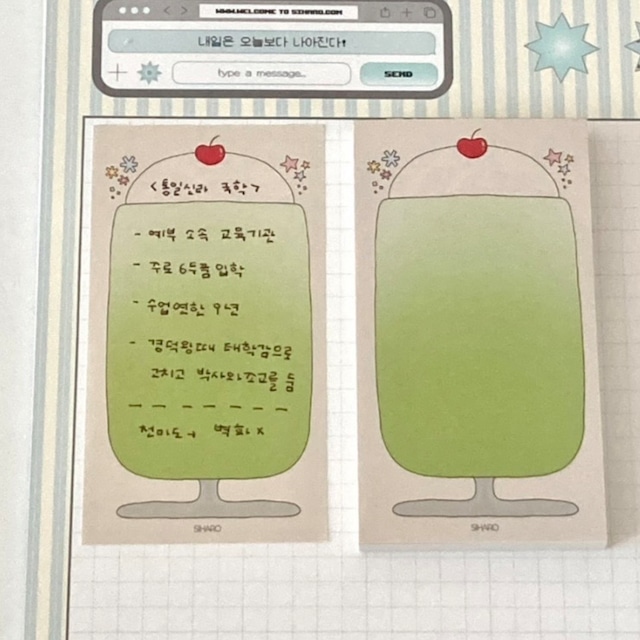 WWW.WELCOME TO SIHARO.COM
내일은 오늘보다 나아진다!
type a message...
SEND
<통일신라 국학>
- 예부 소속 교육기관
- 주로 6두품 입학
- 수업연한 9년
- 경덕왕때 태학감으로
고치고 박사와 조교를 둠
천마도→ 벽화 x
SIHARO
SIHARO